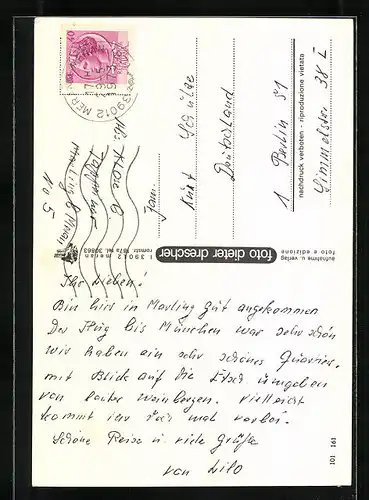 Ihr Lieben!
Bin hier in Marling gut angekommen
Der Flug bis München war sehr schön
wir haben ein sehr schönes Quartier
mit Blick auf die Etsch umgeben
von lauter Weinbergen. Vielleicht
kommt ihr da mal vorbei.
Schöne Reise u. viele Grüße
von Lilo
Fam.
Kurt Schulze
Deutschland
1 Berlin 51
38 I
Marling b/Meran
No 5
39012 MER
foto dieter drescher
I 39012 meran romstr. 187a tel. 30863
aufnahme u. verlag
foto e edizione
nachdruck verboten - riproduzione vietata
101 161